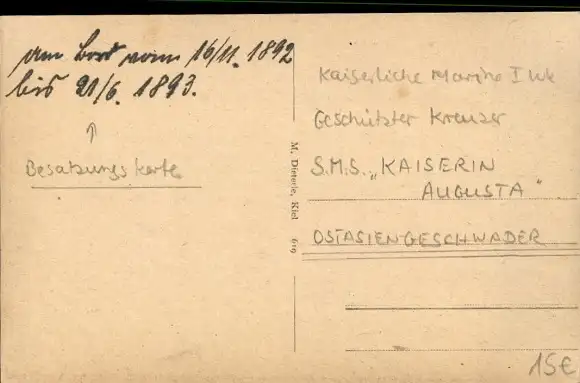 am Bord vom 16/11. 1892
bis 21/6. 1893.
↑
Besatzungskarte
M. Dieterle, Kiel 619
Kaiserliche Marine I WK
Geschützter Kreuzer
S.M.S. „KAISERIN
AUGUSTA"
OSTASIENGESCHWADER
15€